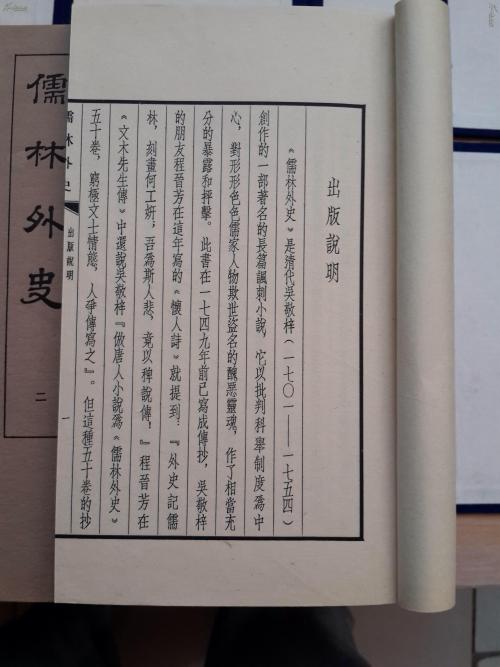 出版說明
《儒林外史》是清代吳敬梓(一七〇一——一七五四)
創作的一部著名的長篇諷刺小說,它以批判科舉制度爲中
心,對形形色色儒家人物欺世盜名的醜惡靈魂,作了相當充
分的暴露和抨擊。此書在一七四九年前已寫成傳抄,吳敬梓
的朋友程晉芳在這年寫的《懷人詩》就提到:『外史記儒
林,刻畫何工妍,吾爲斯人悲,竟以稗說傳!』程晉芳在
《文木先生傳》中還說吳敬梓『倣唐人小說爲《儒林外史》
五十卷,窮極文士情態,人爭傳寫之』。但這種五十卷的抄
儒林外史
出版說明
一
儒林外史
二